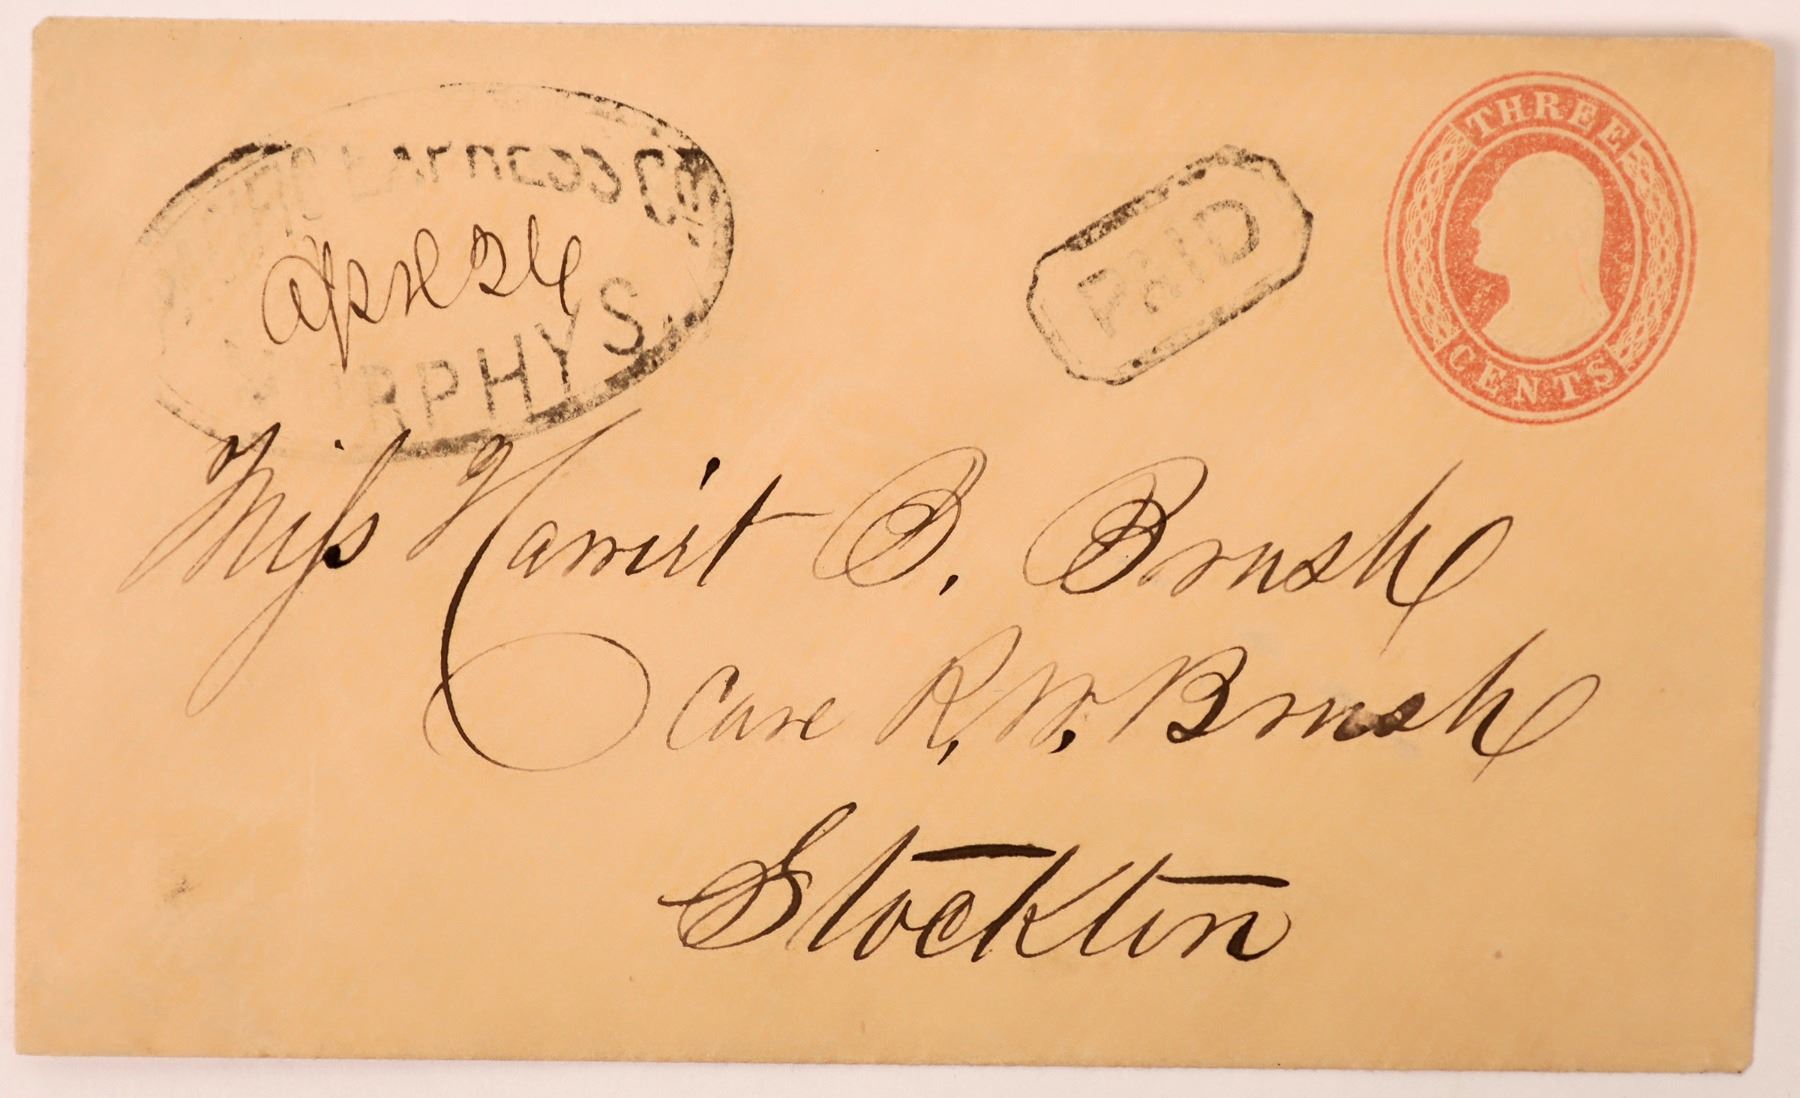 PACIFIC EXPRESS CO.
April 26
MURPHYS
PAID
THREE
CENTS
Miss Harriet B. Brush
Care R. W. Brush
Stockton